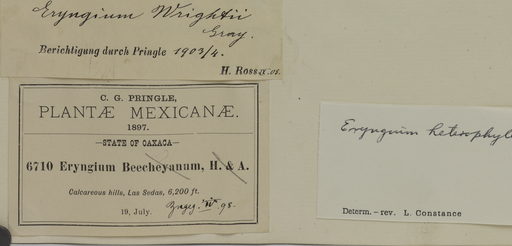 Eryngium Wrightii
Gray.
Berichtigung durch Pringle 1903/4.
H. Ross
C. G. PRINGLE,
PLANTÆ MEXICANÆ.
1897.
—STATE OF OAXACA—
6710 Eryngium Beecheyanum, H. & A.
Calcareous hills, Las Sedas, 6,200 ft.
19, July.
98.
Eryngium heterophyl
Determ. – rev. L. Constance